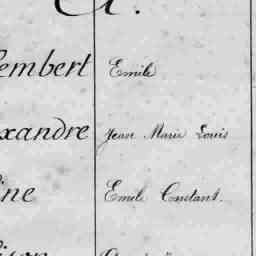 A.
lembert Emile
xandre Jean Marie Louis
ine Emile Constant.